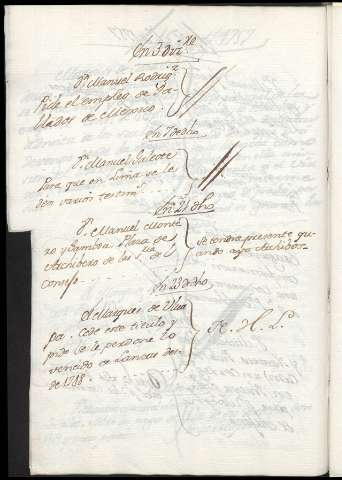 En 3 de Dizre
Dn Manuel Rodrig.z
Pide el empleo de Ta-
llador de Mexico.
En 7 de dho
Dn Manuel
Para que en Lima se le
den varios testim.s
En 21 dho
Dn Manuel Monte
ro y Gamboa Plaza de
Archibero de la S. de
Consejo
se tendra presente qu-
ando aya Archibos
En 23 de dho
El Marques de Ulua
pa. Cede este titulo y
pide se le perdone lo
vencido de Lanzas des-
de 1788.